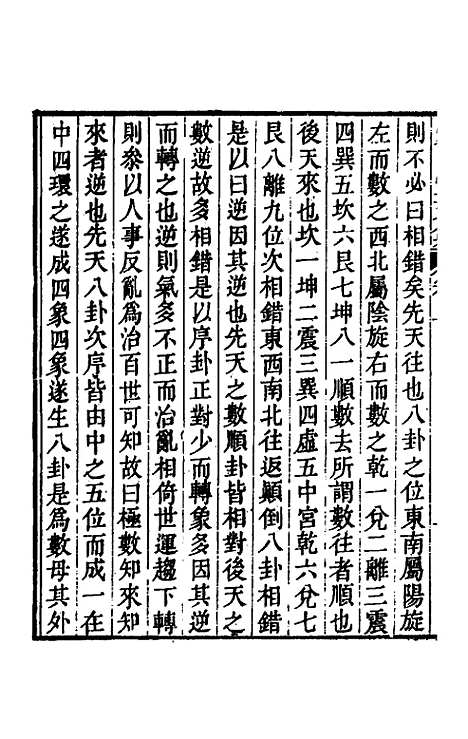 則不必曰相錯矣先天往也八卦之位東南屬陽旋
左而數之西北屬陰旋右而數之乾一兌二離三震
四巽五坎六艮七坤八一順數去所謂數往者順也
後天來也坎一坤二震三巽四虛五中宮乾六兌七
艮八離九位次相錯東西南北往返顛倒八卦相錯
是以曰逆因其是逆也先天之數順卦皆相對後天之
數逆故多相錯是以序卦正對少而轉象多因其逆
而轉之也逆則氣多不正而治亂相倚世運趨下轉
則參以人事反亂爲治百世可知故曰極數知來知
來者逆也先天八卦次序皆由中之五位而成一在
中四環之遂成四象四象遂生八卦是爲數母其外